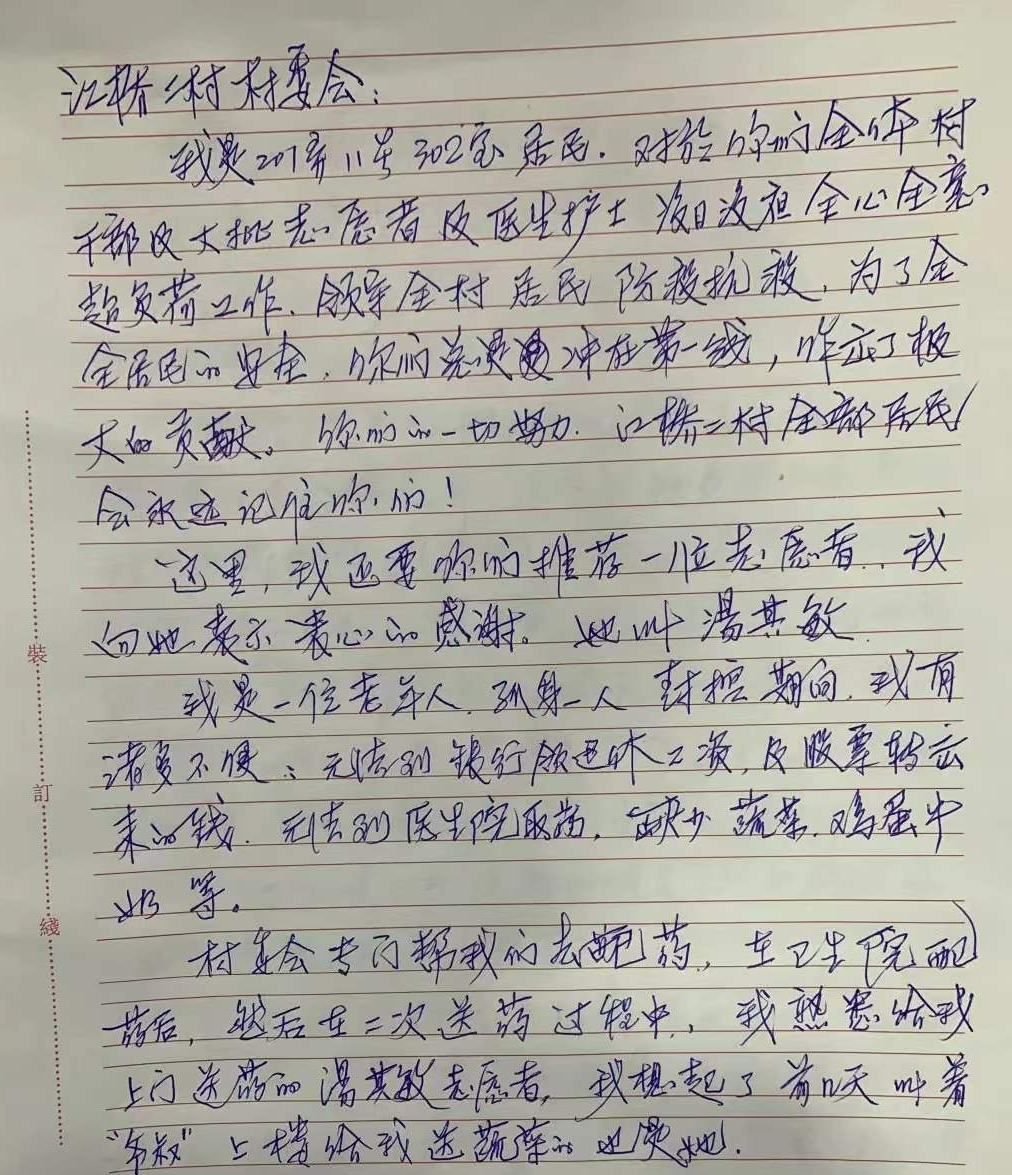 江桥二村村委会：
我是207弄11号302室居民．对於你们全体村
干部及大批志愿者及医生护士没日没夜全心全意
超负荷工作．领导全村居民防疫抗疫，为了全
全居民的安全，你们总是冲在第一线，作出了极
大的贡献。你们的一切努力．江桥二村全部居民
会永远记住你们！
这里，我还要你们推荐一位志愿者．我
向她表示衷心的感谢。她叫湯其敏
我是一位老年人．孤身一人封控期间．我有
诸多不便：无法到银行领退休工资，及股票转出
来的钱．无法到医生院取药，缺少蔬菜．鸡蛋牛
奶等。
村委会专门帮我们去配药，在卫生院配
药后，然后在二次送药过程中，我熟悉给我
上门送药的湯其敏志愿者，我想起了前几天叫着
上楼给我送蔬菜的也是她．
裝
訂
綫